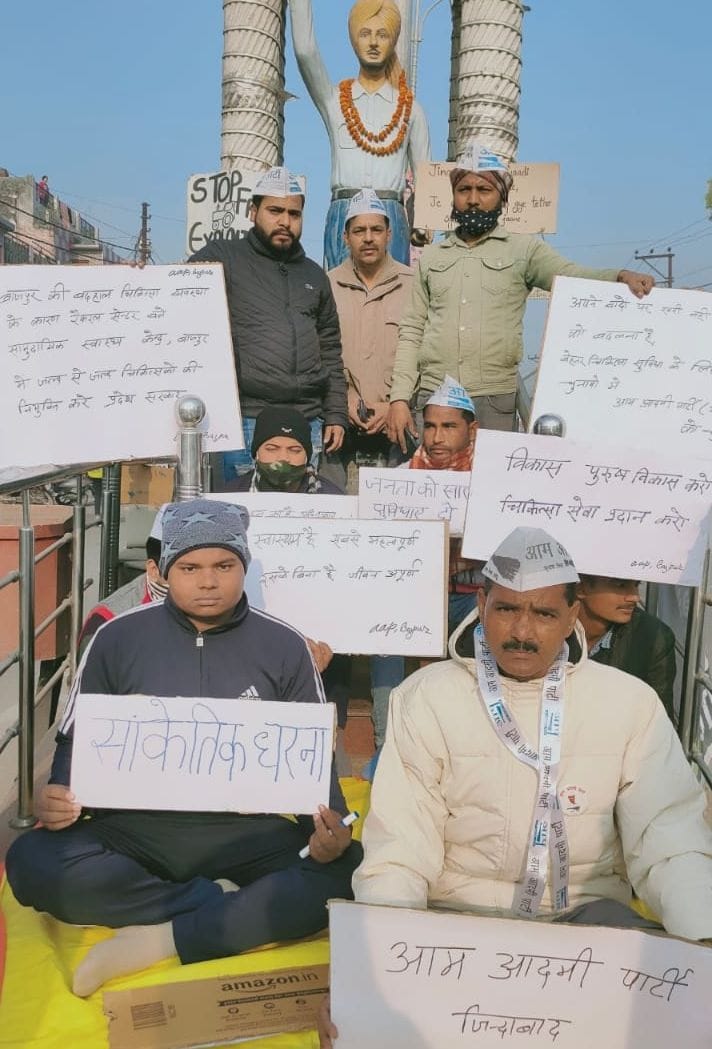 STOP
पार्टी
Je
gye
बाजपुर की बदहाल चिकित्सा व्यवस्था
के कारण रैफरल सेन्टर बने
सामुदायिक स्वास्थ्य केन्द्र, बाजपुर
में जल्द से जल्द चिकित्सकों की
नियुक्ति करे प्रदेश सरकार
aap, Bajpur
अपने वादो पर
को बदलना है,
बेहतर चिकित्सा सुविधा के
चुनावो में
आम आदमी पार्टी
को
जनता को
सुविधाएं दो
विकास पुरूष विकास करो
चिकित्सा सेवा प्रदान करो
aap, Bajpur
स्वास्थ्य है सबसे महत्वपूर्ण
इसके बिना है जीवन अपूर्ण
aap, Bajpur
आम
सांकेतिक धरना
आम आदमी पार्टी
आम आदमी पार्टी
जिन्दाबाद
amazon.in